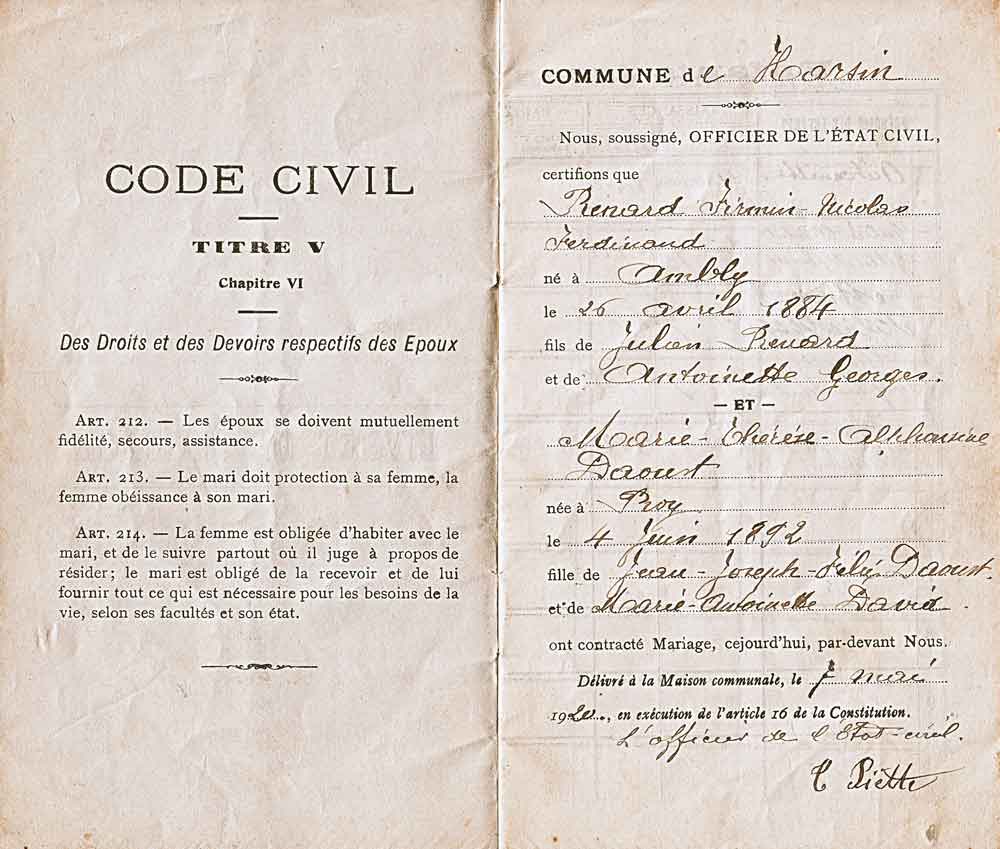 CODE CIVIL
TITRE V
Chapitre VI
Des Droits et des Devoirs respectifs des Epoux
ART. 212. — Les époux se doivent mutuellement
fidélité, secours, assistance.
ART. 213. — Le mari doit protection à sa femme, la
femme obéissance à son mari.
ART. 214. — La femme est obligée d'habiter avec le
mari, et de le suivre partout où il juge à propos de
résider; le mari est obligé de la recevoir et de lui
fournir tout ce qui est nécessaire pour les besoins de la
vie, selon ses facultés et son état.
COMMUNE de Harsin
Nous, soussigné, OFFICIER DE L'ÉTAT CIVIL,
certifions que
Renard Firmin-Nicolas
Ferdinand
né à Ambly
le 26 avril 1884
fils de Julien Renard
et de Antoinette Georges.
— ET —
Marie-Thérèse-Alphonsine
Daoust
née à Roy
le 4 Juin 1892
fille de Jean-Joseph-Félix Daoust.
et de Marie-Antoinette David
ont contracté Mariage, cejourd'hui, par-devant Nous.
Délivré à la Maison communale, le 7
1920, en exécution de l'article 16 de la Constitution.
L'officier de l'État-civil.
Piette